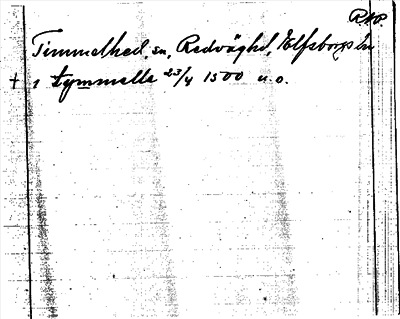 RAp.
Timmelhed, sn, Redvägs hd, Elfsborgs ln
+ i tymmelle 23/4 1500 u. o.